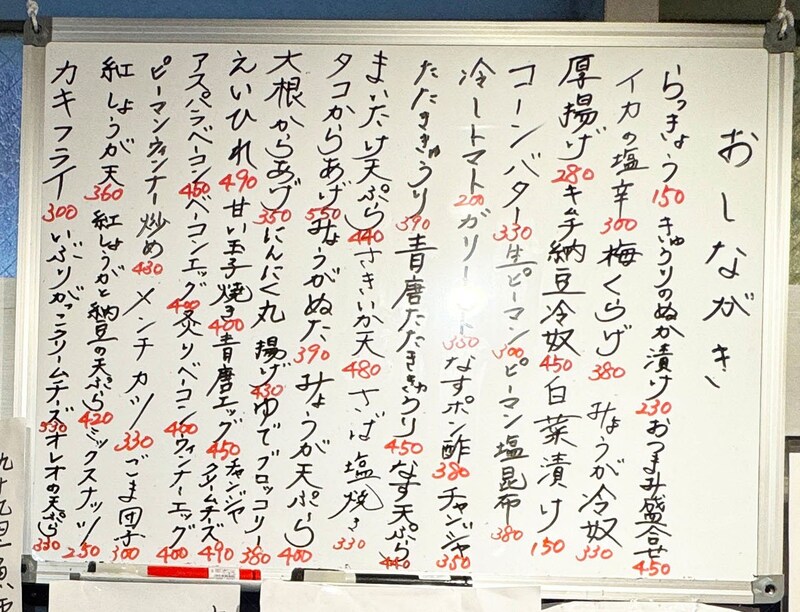 おしながき
らっきょう 150 きゅうりのぬか漬け 230 おつまみ盛合せ 450
イカの塩辛 300 梅くらげ 380 みょうが冷奴 330
厚揚げ 280 キムチ納豆冷奴 450 白菜漬け 150
コーンバター 330 生ピーマン 300 ピーマン塩昆布 380
冷しトマト 200 ガリートマト 350 なすポン酢 380 チャンジャ 350
たたききゅうり 390 青唐たたききゅうり 450 なす天ぷら 440
まいたけ天ぷら 440 さきいか天 480 さば塩焼き 330
タコからあげ 550 みょうがぬた 390 みょうが天ぷら 400
大根からあげ 350 にんにく丸揚げ 430 ゆでブロッコリー 380
えいひれ 490 甘い玉子焼き 400 青唐エッグ 450 チャンジャクリームチーズ 490
アスパラベーコン 450 ベーコンエッグ 400 炙りベーコン 400 ウィンナーエッグ 400
ピーマンウィンナー炒め 430 メンチカツ 330 ごま団子 300
紅しょうが天 360 紅しょうがと納豆の天ぷら 420 ミックスナッツ 250
カキフライ 300 いぶりがっこクリームチーズ 330 オレオの天ぷら 330
九十九里魚